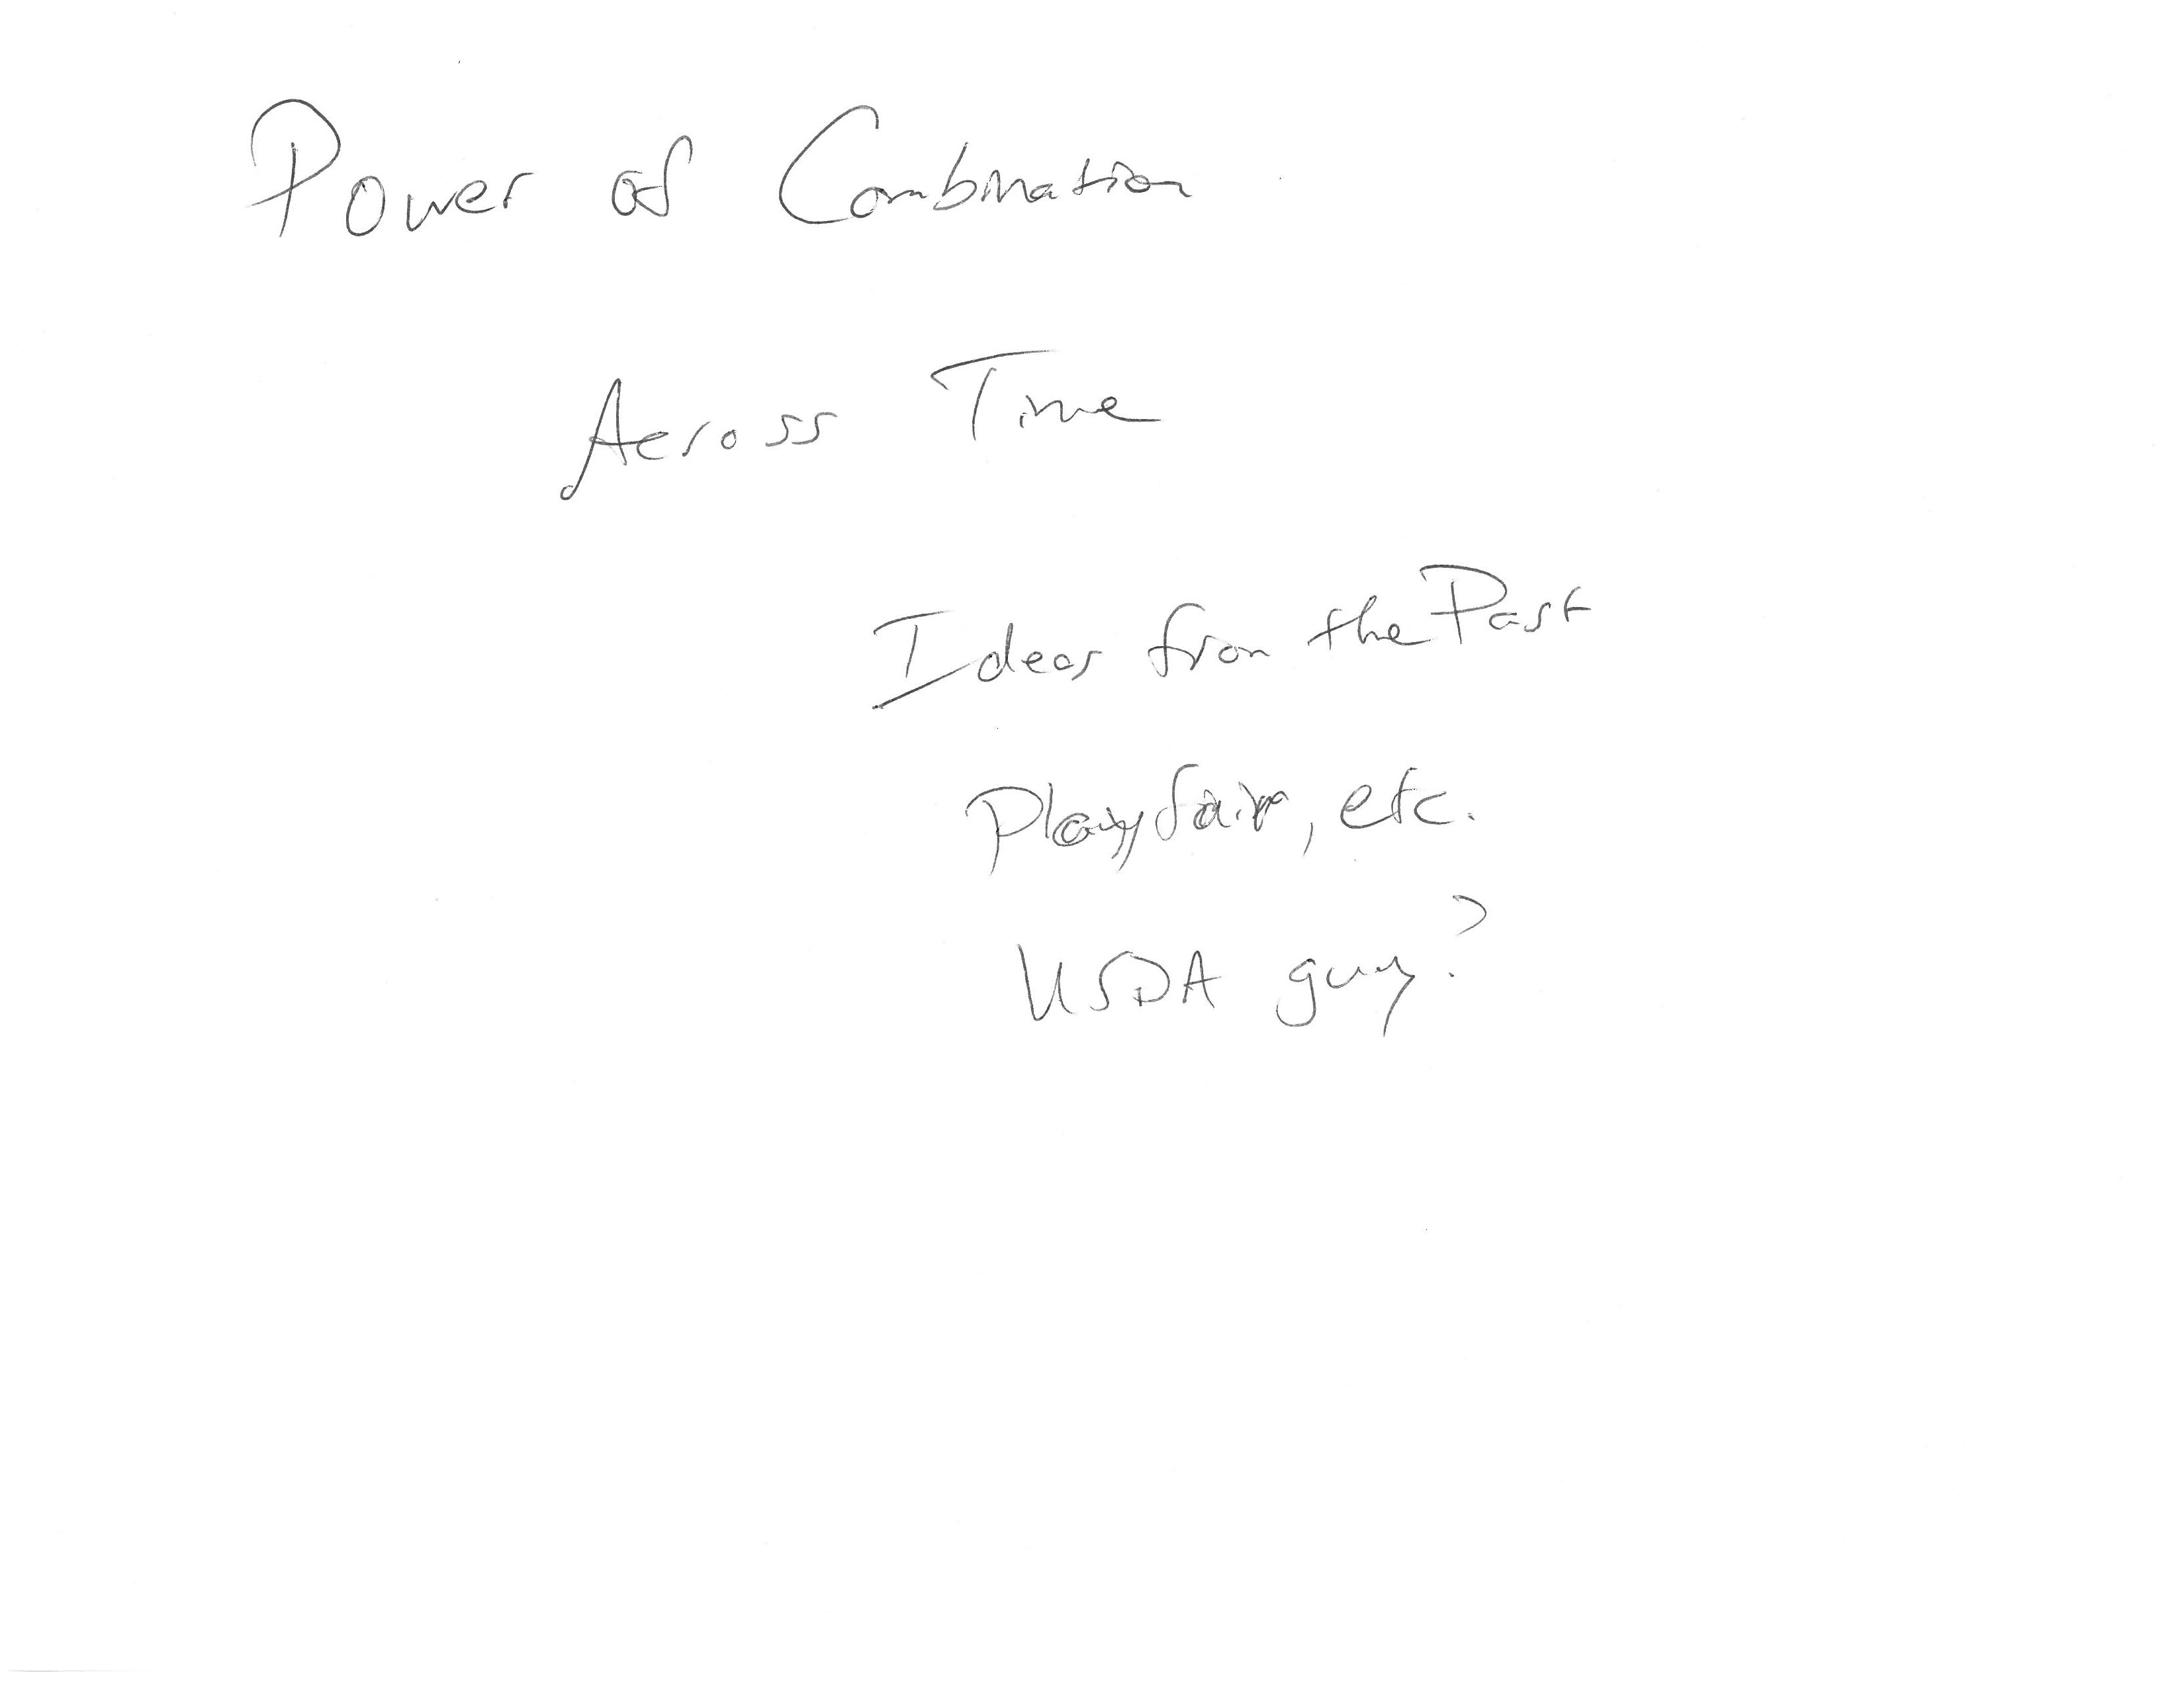 Power of Combination
Across Time
Ideas from the Past
Playfair, etc.
USDA guy?